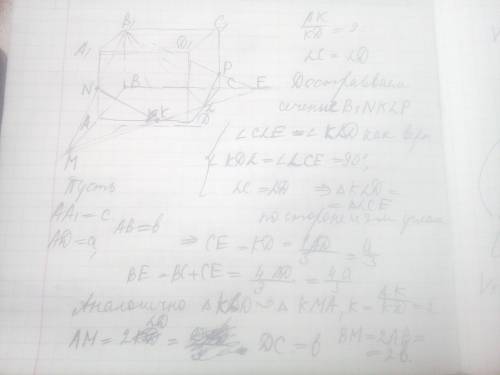 B₁ C₁
A₁ D₁
N B P C E
A K L D
M
AK/KD = 2
LC = LD
Достраиваем
сечение B₁NKLP
∠CLE = ∠KLD как вер
∠KDL = ∠LCE = 90°,
LC = LD ⇒ △KLD =
= △LCE
по стороне и 2м углам
Пусть
AA₁ = c
AB = b
AD = a,
⇒ CE = KD = AD/3 = a/3
BE = BC + CE = 4AD/3 = 4a/3
Аналогично △KLD ~ △KMA, k = AK/KD = 2
AM = 2LD = DC = b BM = 2AB =
= 2b.